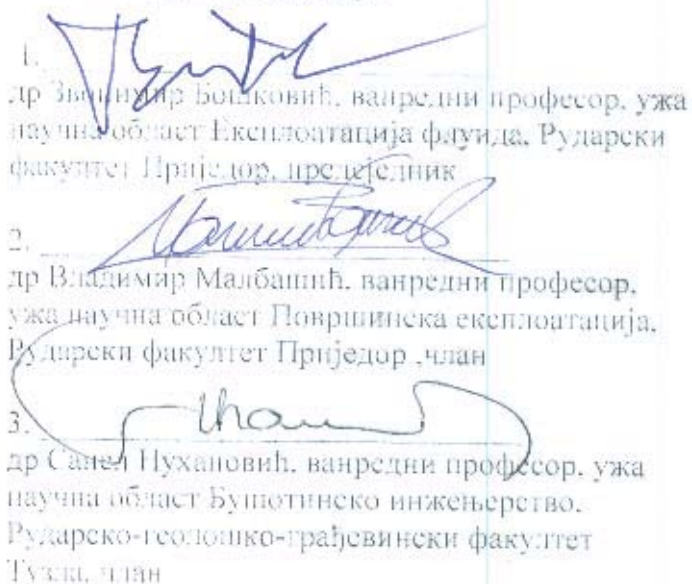 1.
др Звонимир Бошковић, ванредни професор, ужа
научна област Експлоатација флуида, Рударски
факултет Приједор, предсједник
2.
др Владимир Малбашић, ванредни професор,
ужа научна област Површинска експлоатација,
Рударски факултет Приједор ,члан
3.
др Санел Нухановић, ванредни професор, ужа
научна област Бушотинско инжењерство,
Рударско-геолошко-грађевински факултет
Тузла, члан